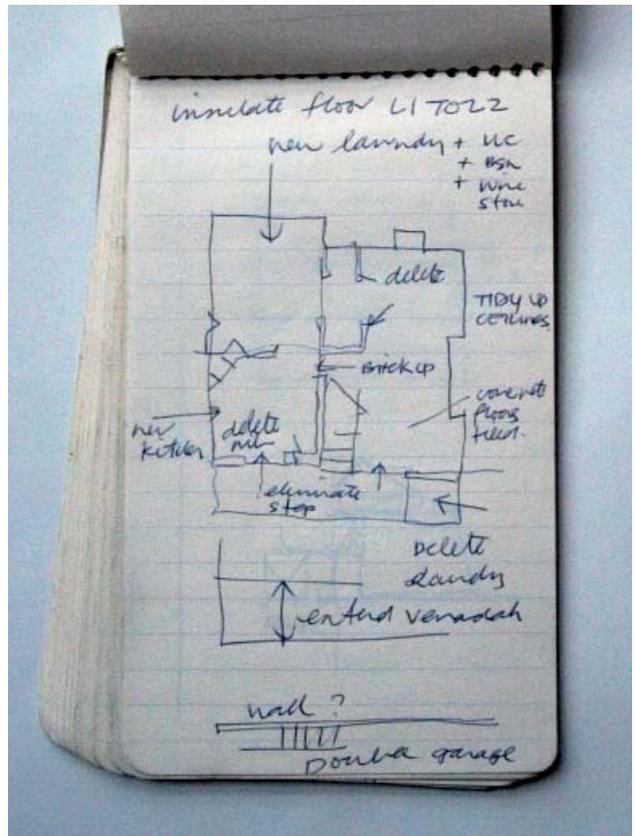 insulate floor L1 TO L2
new laundry + WC
+ BSN
+ wine
store
delete
TIDY UP
CEILINGS
Brick up
concrete
floors
tiled.
new
kitchen
delete
eliminate
step
Delete
Laundry
extend verandah
wall ?
Double garage